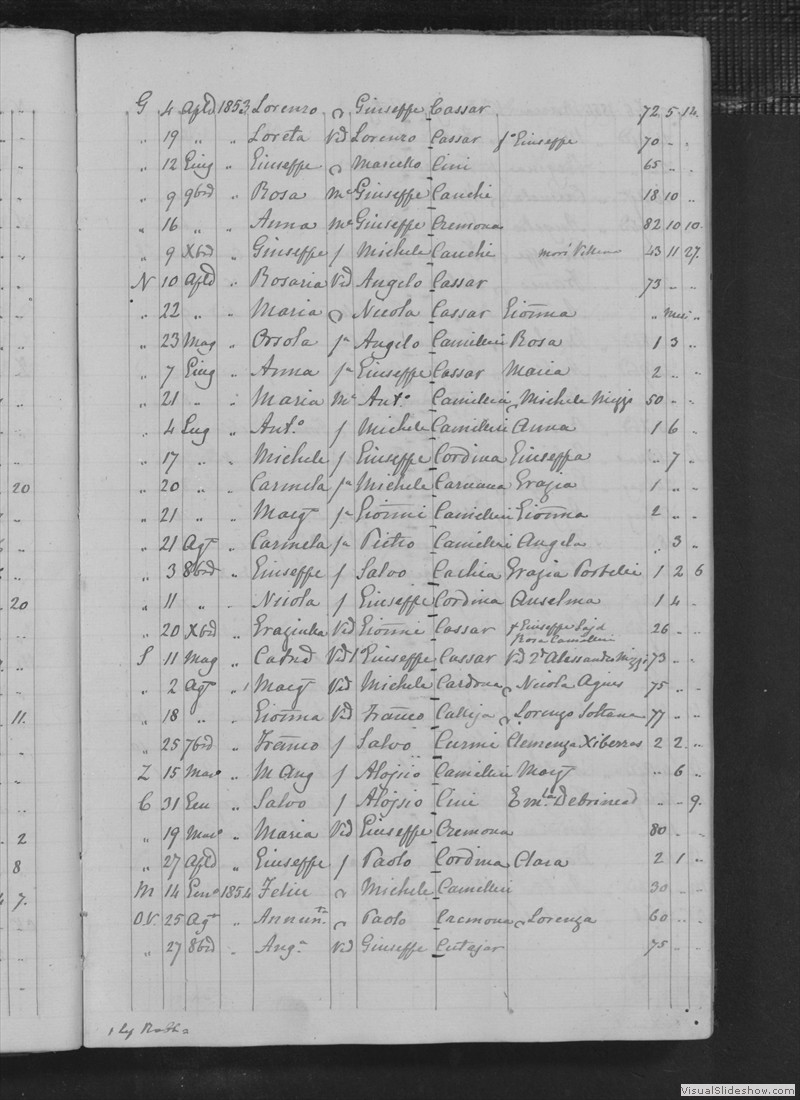 G 4 Aple 1853 Lorenzo Giuseppe Cassar 72 5 14
" 19 " " Loreta Vid Lorenzo Cassar Giuseppe 70 " "
" 12 Giug " Giuseppe Marcello Cini 65 " "
" 9 9bre " Rosa Me Giuseppe Cauchi 18 10 "
" 16 " " Anna Me Giuseppe Cremona 82 10 10
" 9 Xbre " Giuseppe f Michele Cauchi 43 11 27
N 10 Aple " Rosaria Vid Angelo Cassar 73 " "
" 22 " " Maria Nicola Cassar Gioãna " "
" 23 Mag " Orsola fa Angelo Camilleri Rosa 1 3 "
" 7 Giug " Anna fa Giuseppe Cassar Maria 2 " "
" 21 " " Maria Me Anto Camilleri Michele Mizzi 50 " "
" 4 Lug " Anto f Michele Camilleri Anna 1 6 "
" 17 " " Michele f Giuseppe Cordina Giuseppa " 7 "
20 " 20 " " Carmela fa Michele Caruana Grazia 1 " "
" 21 " " Marg fa Gioãni Camilleri Gioãna 2 " "
" 21 Agt " Carmela fa Pietro Camilleri Angela " 3 "
" 3 8bre " Giuseppe f Salvo Cachia Grazia Portelli 1 2 6
20 " 11 " " Nicola f Giuseppe Cordina Anselma 1 4 "
" 20 Xbre " Grazinha Vid Gioãni Cassar Giuseppe Rosa Camilleri 26 " "
S 11 Mag " Vid 1o Giuseppe Cassar Vid 2o Alessandro Mizzi 73 " "
" 2 Agt " Marg Vid Michele Cardona Nicola Agius 75 " "
11. " 18 " " Gioãna Vid Franco Calleja Lorenzo Soltana 77 " "
" 25 7bre " Franco f Salvo Curmi Clemenza Xiberras 2 2 "
Z 15 Maro " M Ang f Aloisio Camilleri Marg " 6 "
C 31 Gen " Salvo f Aloisio Cini Debrincat " " 9
2 " 19 Maro " Maria Vid Giuseppe Cremona 80 " "
8 " 27 Aple " Giuseppe f Paolo Cordina Clara 2 1 "
7. M 14 Geno 1854 Felice Michele Camilleri 30 " "
O.V. 25 Agt " Annunta Paolo Cremona Lorenza 60 " "
" 27 8bre " Anga Vid Giuseppe Cutajar 75 " "
VisualSlideshow.com